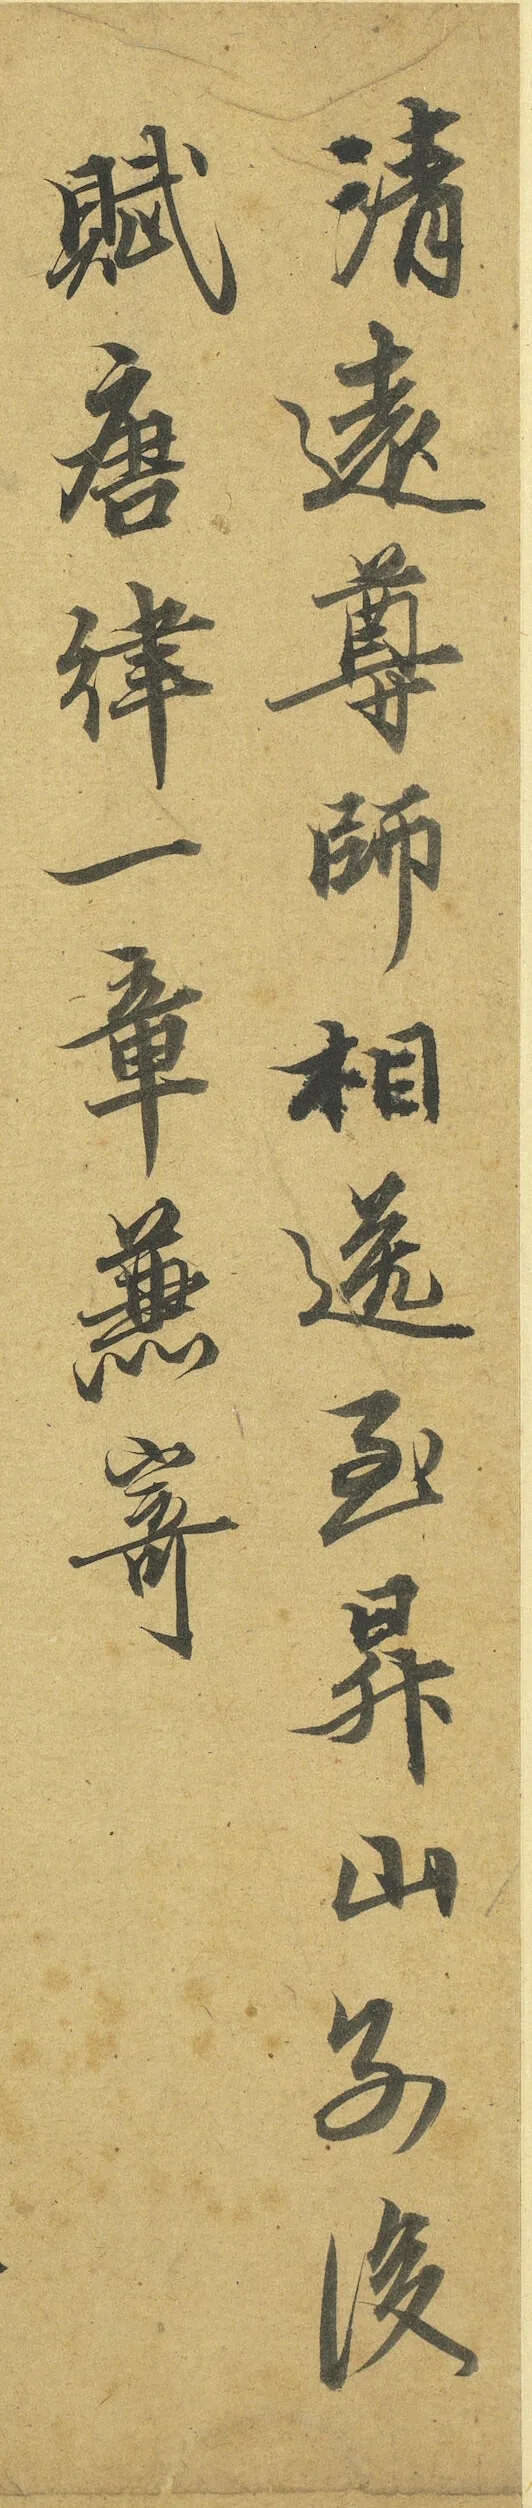 清遠尊師相送至昇山別後
賦唐律一章兼寄